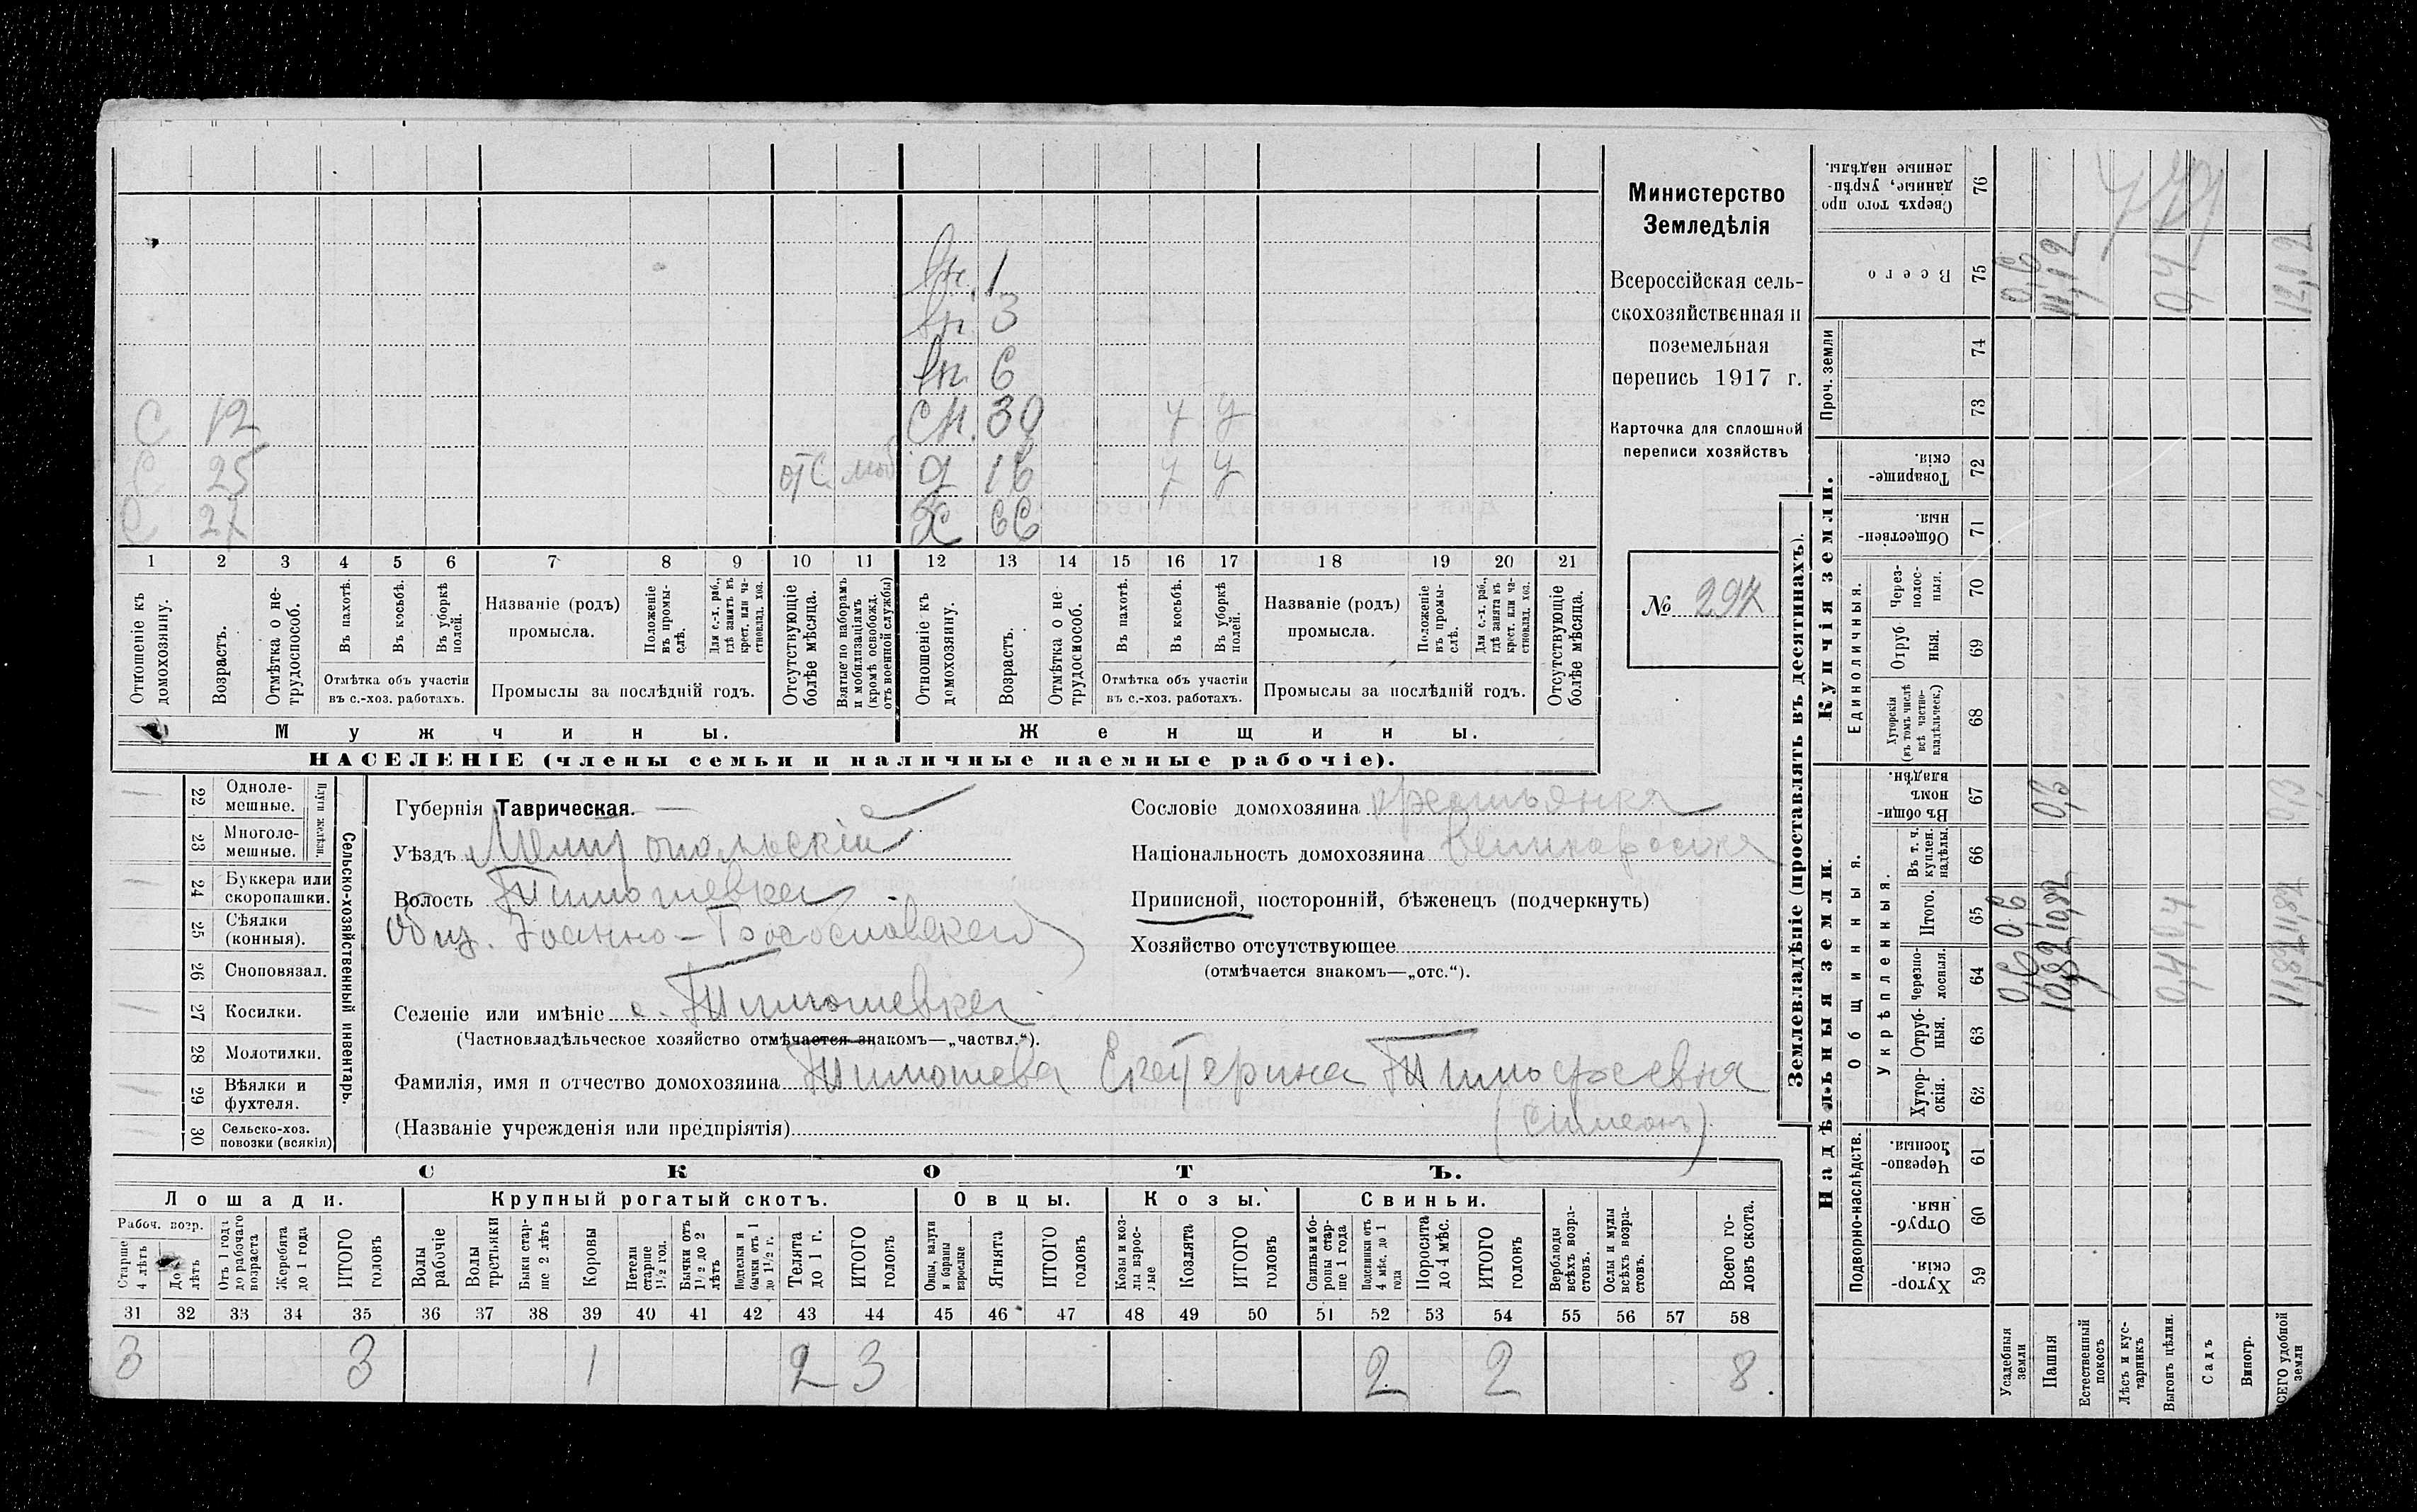 вн. 1
вн. 3
вн. 6
С 12 сн. 39 у у
С 25 отс. моб д 16 у у
С 27 Х 66
1 2 3 4 5 6 7 8 9 10 11 12 13 14 15 16 17 18 19 20 21
Отношеніе къ домохозяину.
Возрастъ.
Отмѣтка о нетрудоспособ.
Въ пахотѣ.
Въ косьбѣ.
Въ уборкѣ полей.
Отмѣтка объ участіи въ с.-хоз. работахъ.
Названіе (родъ) промысла.
Положеніе въ промыслѣ.
Для с.-х. раб., гдѣ занятъ въ крест. или частновлад. хоз.
Промыслы за послѣдній годъ.
Отсутствующіе болѣе мѣсяца.
Взятые по наборамъ и мобилизаціямъ (кромѣ освобожд. отъ военной службы)
Отношеніе къ домохозяину.
Возрастъ.
Отмѣтка о нетрудоспособ.
Въ пахотѣ.
Въ косьбѣ.
Въ уборкѣ полей.
Отмѣтка объ участіи въ с.-хоз. работахъ.
Названіе (родъ) промысла.
Положеніе въ промыслѣ.
Для с.-х. раб., гдѣ занята въ крест. или частновлад. хоз.
Промыслы за послѣдній годъ.
Отсутствующіе болѣе мѣсяца.
Мужчины. Женщины.
НАСЕЛЕНІЕ (члены семьи и наличные наемные рабочіе).
Министерство
Земледѣлія
Всероссійская сель-
скохозяйственная и
поземельная
перепись 1917 г.
Карточка для сплошной
переписи хозяйствъ
№ 297
22 Одноле-мешные.
23 Многоле-мешные.
Плуги желѣзн.
24 Буккера или скоропашки.
25 Сѣялки (конныя).
26 Сноповязал.
27 Косилки.
28 Молотилки.
29 Вѣялки и фухтеля.
30 Сельско-хоз. повозки (всякія)
Сельско-хозяйственный инвентарь.
Губернія Таврическая.
Уѣздъ Мелитопольскій
Волость Тимошевка
Общ. Іоанно-Богословской
Селеніе или имѣніе с. Тимошевка
(Частновладѣльческое хозяйство отмѣчается знакомъ—„частвл.“).
Фамилія, имя и отчество домохозяина Тимошева Екатерина Тимофеевна
(Названіе учрежденія или предпріятія) (Симеонъ)
Сословіе домохозяина крестьянка
Національность домохозяина великоросска
Приписной, посторонній, бѣженецъ (подчеркнуть)
Хозяйство отсутствующее
(отмѣчается знакомъ—„отс.“).
СКОТЪ.
Лошади. Крупный рогатый скотъ. Овцы. Козы. Свиньи.
Рабоч. возр.
Старше 4 лѣтъ
До 4 лѣтъ
Отъ 1 года до рабочаго возраста
Жеребята до 1 года
ИТОГО головъ
Волы рабочіе
Волы третьяки
Быки старше 2 лѣтъ
Коровы
Нетели старше 1½ год.
Бычки отъ 1½ до 2 лѣтъ
Подтелки и бычки отъ 1 до 1½ г.
Телята до 1 г.
ИТОГО головъ
Овцы, валухи и бараны взрослые
Ягнята
ИТОГО головъ
Козы и козлы взрослые
Козлята
ИТОГО головъ
Свиньи и боровы старше 1 года
Подсвинки отъ 4 мѣс. до 1 года
Поросята до 4 мѣс.
ИТОГО головъ
Верблюды всѣхъ возрастовъ.
Ослы и мулы всѣхъ возрастовъ.
Всего головъ скота.
31 32 33 34 35 36 37 38 39 40 41 42 43 44 45 46 47 48 49 50 51 52 53 54 55 56 57 58
3 3 1 2 3 2 2 8.
Землевладѣніе (проставлять въ десятинахъ).
Надѣльныя земли. Купчія земли.
Подворно-наслѣдств. Общинныя. Укрѣпленныя. Единоличныя. Проч. земли
59 Хуторскія.
60 Отрубныя.
61 Черезполосныя.
62 Хуторскія.
63 Отрубныя.
64 Черезполосныя.
65 Итого.
66 Въ т. ч. куплен. надѣлы.
67 Въ общинномъ владѣн.
68 Хуторскія (въ томъ числѣ всѣ частновладѣльческ.)
69 Отрубныя.
70 Черезполосныя.
71 Общественныя.
72 Товарищескія.
73
74
75 Всего
76 Сверхъ того проданные, укрѣпленные надѣлы.
Усадебныя земли 0,6 0,6 0,6
Пашня 10,82 10,82 0,3 11,12
Естественный покосъ
Лѣсъ и кустарникъ
Выгонъ цѣлин. 0,4 0,4 0,4
Садъ
Виногр.
ВСЕГО удобной земли 11,82 11,82 0,3 12,12